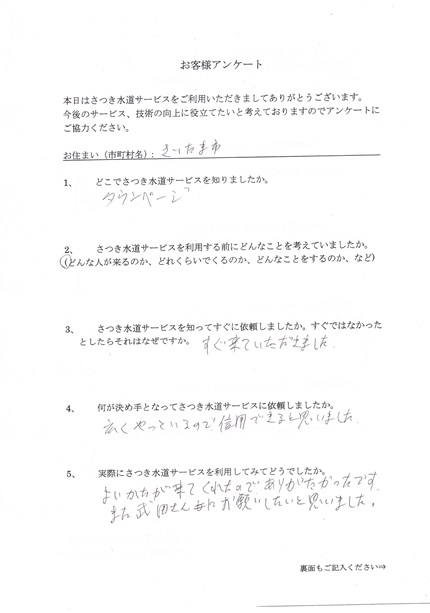 お客様アンケート
本日はさつき水道サービスをご利用いただきましてありがとうございます。
今後のサービス、技術の向上に役立てたいと考えておりますのでアンケートに
ご協力ください。
お住まい（市町村名）： さいたま市
1、 どこでさつき水道サービスを知りましたか。
タウンページ
2、 さつき水道サービスを利用する前にどんなことを考えていましたか。
（どんな人が来るのか、どれくらいでくるのか、どんなことをするのか、など）
3、 さつき水道サービスを知ってすぐに依頼しましたか。すぐではなかった
としたらそれはなぜですか。 すぐ来ていただきました.
4、 何が決め手となってさつき水道サービスに依頼しましたか。
広くやっているので信用できると思いました.
5、 実際にさつき水道サービスを利用してみてどうでしたか。
よいかたが来てくれたのでありがたかったです.
また武田さんにお願いしたいと思いました.
裏面もご記入ください⇒